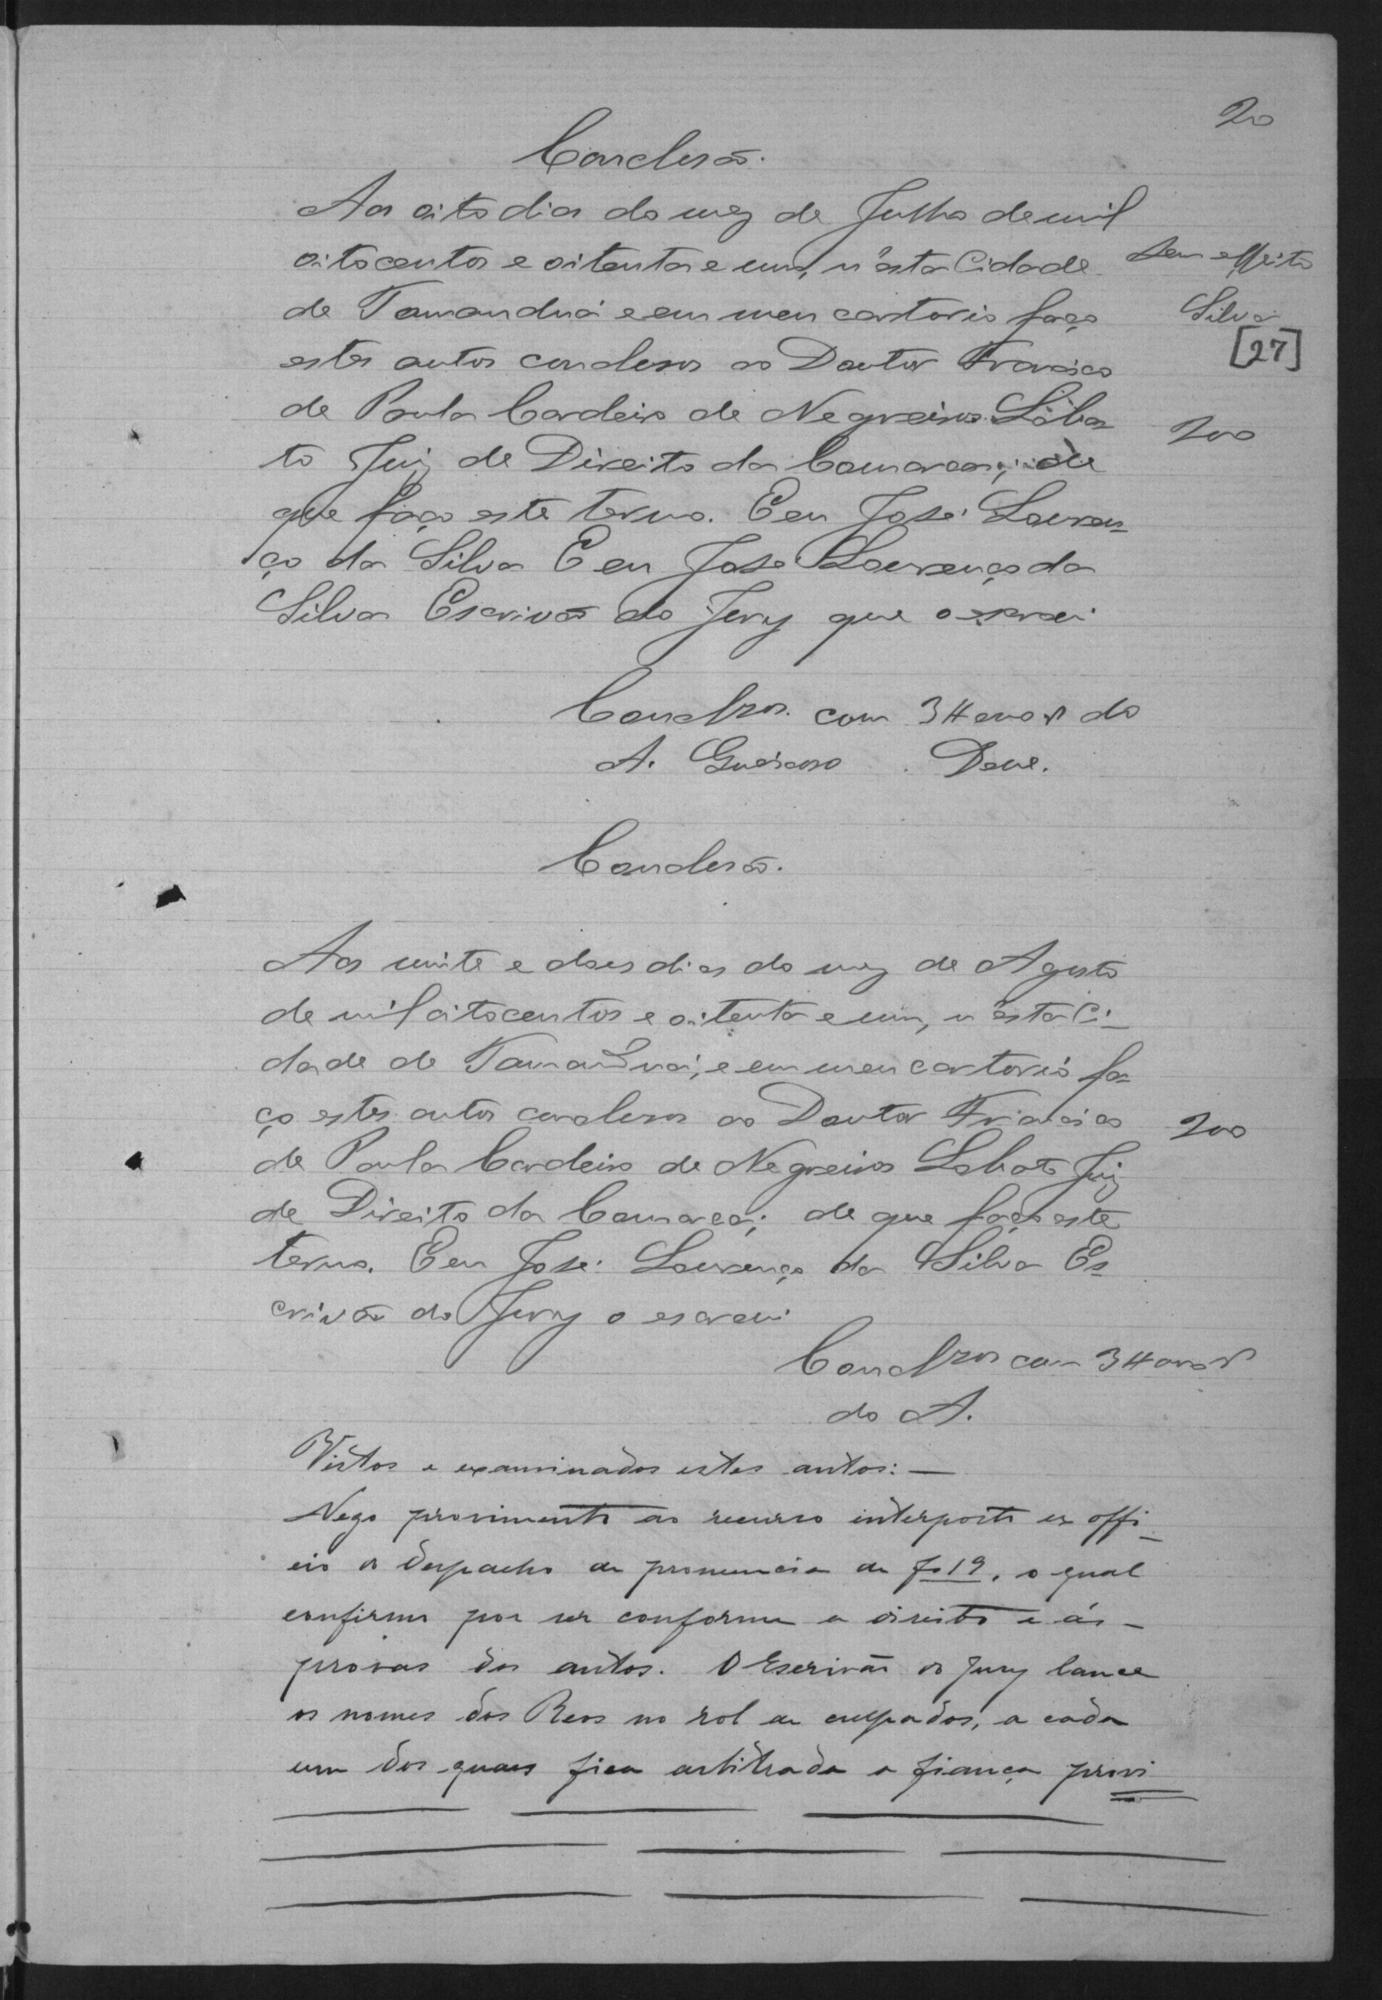 20
Conclusão.
Aos oito dias do mez de Julho de mil
oitocentos e oitenta e um, n'esta Cidade
sem effeito
de Tamanduá e em meu cartorio faço
Silva
estes autos conclusos ao Doutor Francisco
[27]
de Paula Cordeiro de Negreiros Loba
200
to Juiz de Direito da Comarca; de
que faço este termo. E eu José Louren-
ço da Silva E eu José Lourenço da
Silva Escrivão do Jury que o escrevi
Conclzos. com 34 do
A. Deve.
Conclusão.
Aos vinte e dous dias do mez de Agosto
de mil oitocentos e oitenta e um, n'esta Ci-
dade de Tamanduá, e em meu cartorio fa-
ço estes autos conclusos ao Doutor Francisco
200
de Paula Cordeiro de Negreiros Lobato Juiz
de Direito da Comarca; de que faço este
termo. E eu José Lourenço da Silva Es-
crivão do Jury o escrevi
Conclzos com 34
do A.
Vistos e examinados estes autos: —
Nego provimento ao recurso interposto ex offi-
cio do despacho de pronuncia de fs 19, o qual
confirmo por ser conforme a direito e ás -
provas dos autos. O Escrivão do Jury lance
os nomes dos Reos no rol de culpados, a cada
um dos quaes fica arbitrada a fiança provi